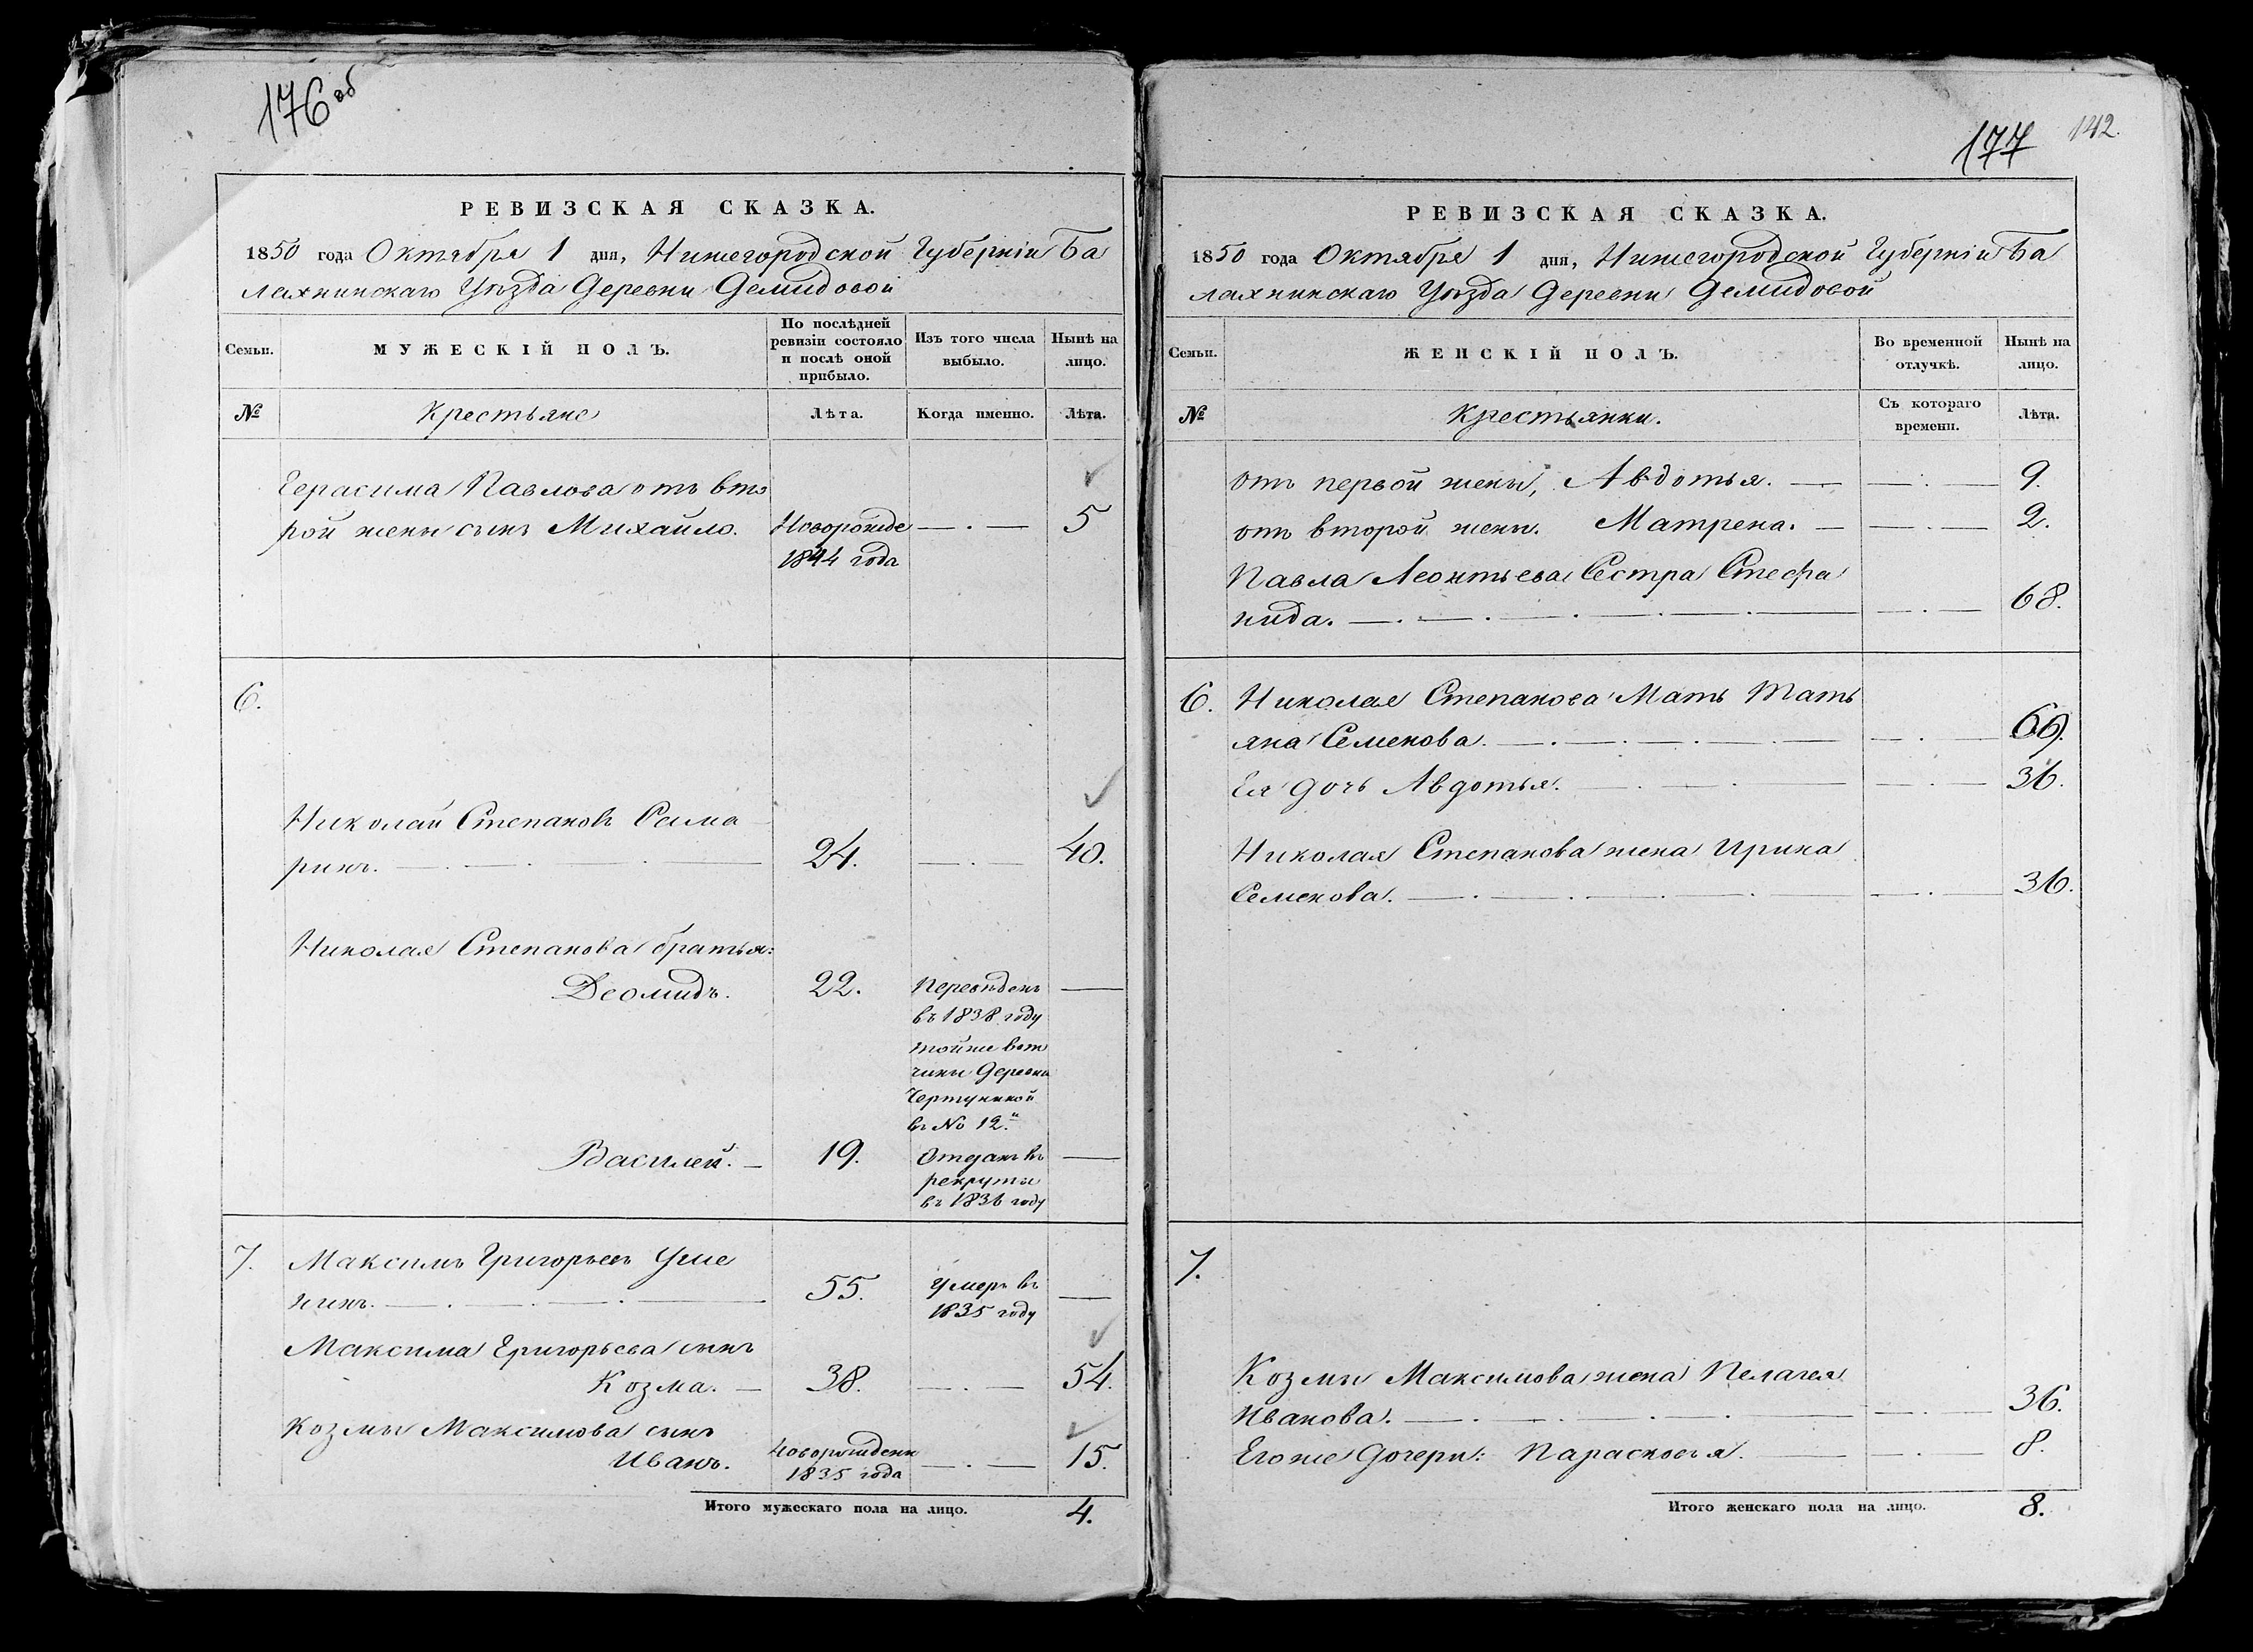 176 об
РЕВИЗСКАЯ СКАЗКА.
1850 года Октября 1 дня, Нижегородской Губерніи Ба
лахнинскаго Уѣзда Деревни Демидовой
Семьи.
МУЖЕСКІЙ ПОЛЪ.
По послѣдней
ревизіи состояло
и послѣ оной
прибыло.
Изъ того числа
выбыло.
Нынѣ на
лицо.
№
Крестьяне
Лѣта.
Когда именно.
Лѣта.
Герасима Павлова отъ вто
рой жены сынъ Михайло. Новорожде 5
1844 года
6.
Николай Степановъ Сама
ринъ. 24. 40.
Николая Степанова братья:
Деомидъ. 22. Переведенъ
въ 1838 году
тойже вот
чины Деревни
въ № 12й
Василей. 19. Отданъ въ
рекруты
въ 1836 году
7. Максимъ Григорьевъ
55. Умеръ въ
1835 году
Максима Григорьева сынъ
Козма. 38. 54.
Козмы Максимова сынъ
Иванъ. Новорожденъ 15.
1835 года
Итого мужескаго пола на лицо. 4.
177 142.
РЕВИЗСКАЯ СКАЗКА.
1850 года Октября 1 дня, Нижегородской Губерніи Ба
лахнинскаго Уѣзда Деревни Демидовой
Семьи.
ЖЕНСКІЙ ПОЛЪ.
Во временной
отлучкѣ.
Нынѣ на
лицо.
№
Крестьянки.
Съ котораго
времени.
Лѣта.
отъ первой жены, Авдотья. 9.
отъ второй жены. Матрена. 2.
Павла Леонтьева Сестра Стефа
нида. 68.
6. Николая Степанова Мать Тать
яна Семенова. 69.
Ея дочь Авдотья. 36.
Николая Степанова жена Ирина
Семенова. 36.
7.
Козмы Максимова жена Пелагея
Иванова. 36.
Егоже дочери: Парасковья. 8.
Итого женскаго пола на лицо. 8.